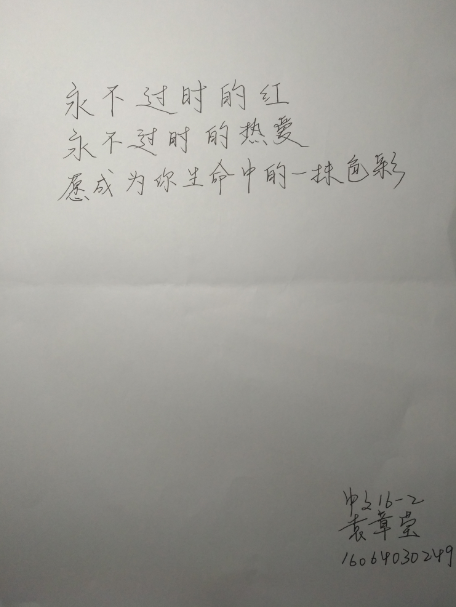 永不过时的红
永不过时的热爱
愿成为你生命中的一抹色彩
中文16-2
袁章莹
16064030249